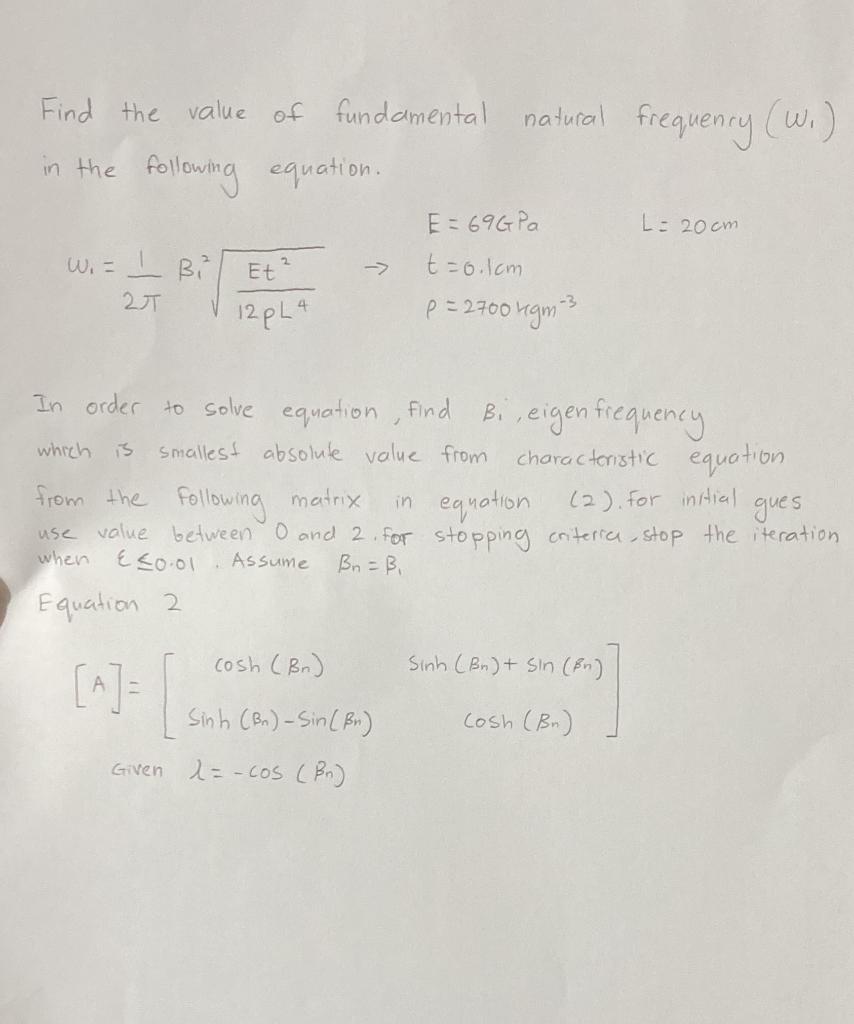 Find the value of fundamental natural frequency (W₁)
in the following equation.
E = 69GPa L = 20cm
W₁ = 1/2π B₁² √(Et²/12ρL⁴) → t = 0.1cm
ρ = 2700 kgm⁻³
In order to solve equation, find B₁, eigen frequency
which is smallest absolute value from characteristic equation
from the following matrix in equation (2). for initial gues
use value between 0 and 2. for stopping criteria, stop the iteration
when ε ≤ 0.01. Assume Bn = B₁
Equation 2
[A] = [ cosh (Bn) Sinh (Bn) + Sin (Bn)
Sinh (Bn) - Sin (Bn) cosh (Bn) ]
Given λ = - cos (Bn)